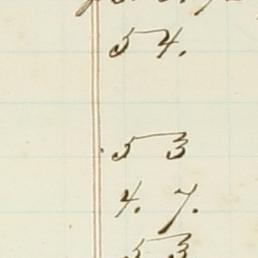 54.
53
4. 7.
53